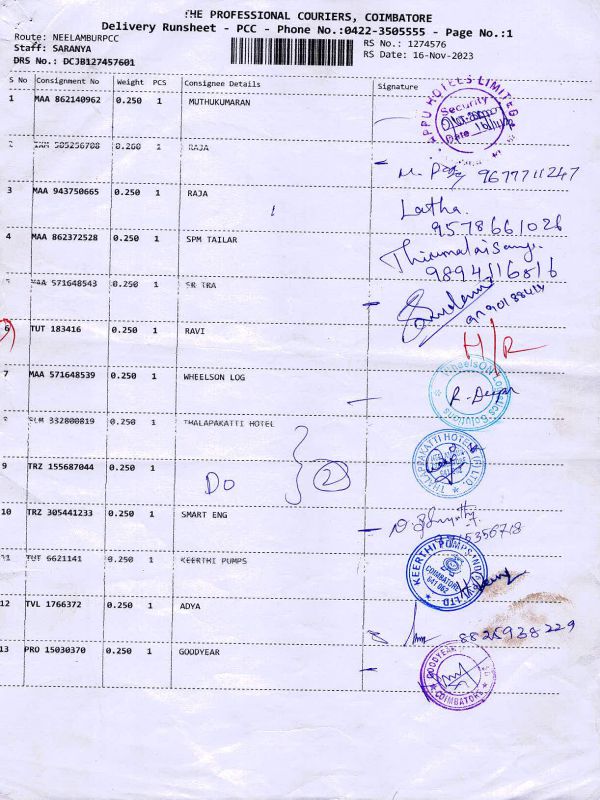 THE PROFESSIONAL COURIERS, COIMBATORE
Delivery Runsheet - PCC - Phone No.:0422-3505555 - Page No.:1
Route: NEELAMBURPCC
Staff: SARANYA
DRS No.: DCJB127457601
RS No.: 1274576
RS Date: 16-Nov-2023
S No Consignment No Weight PCS Consignee Details Signature
1 MAA 862140962 0.250 1 MUTHUKUMARAN
APPU HOTELS LIMITED
Security
Date
2 505256708 0.260 1 RAJA
9677711247
3 MAA 943750665 0.250 1 RAJA
Latha.
9578661026
4 MAA 862372528 0.250 1 SPM TAILAR
9894116816
5 MAA 571648543 0.250 1 SR TRA
6 TUT 183416 0.250 1 RAVI
H/R
7 MAA 571648539 0.250 1 WHEELSON LOG
WheelsON Logistics Solutions
8 SLM 332800819 0.250 1 THALAPAKATTI HOTEL
THALAPPAKATTI HOTELS (P) LTD.
9 TRZ 155687044 0.250 1
DO
2
10 TRZ 305441233 0.250 1 SMART ENG
15356718
11 TUT 6621141 0.250 1 KEERTHI PUMPS
KEERTHI PUMPS INDIA PVT LTD
COIMBATORE
641 062
12 TVL 1766372 0.250 1 ADYA
8825938229
13 PRO 15030370 0.250 1 GOODYEAR
GOODYEAR
COIMBATORE